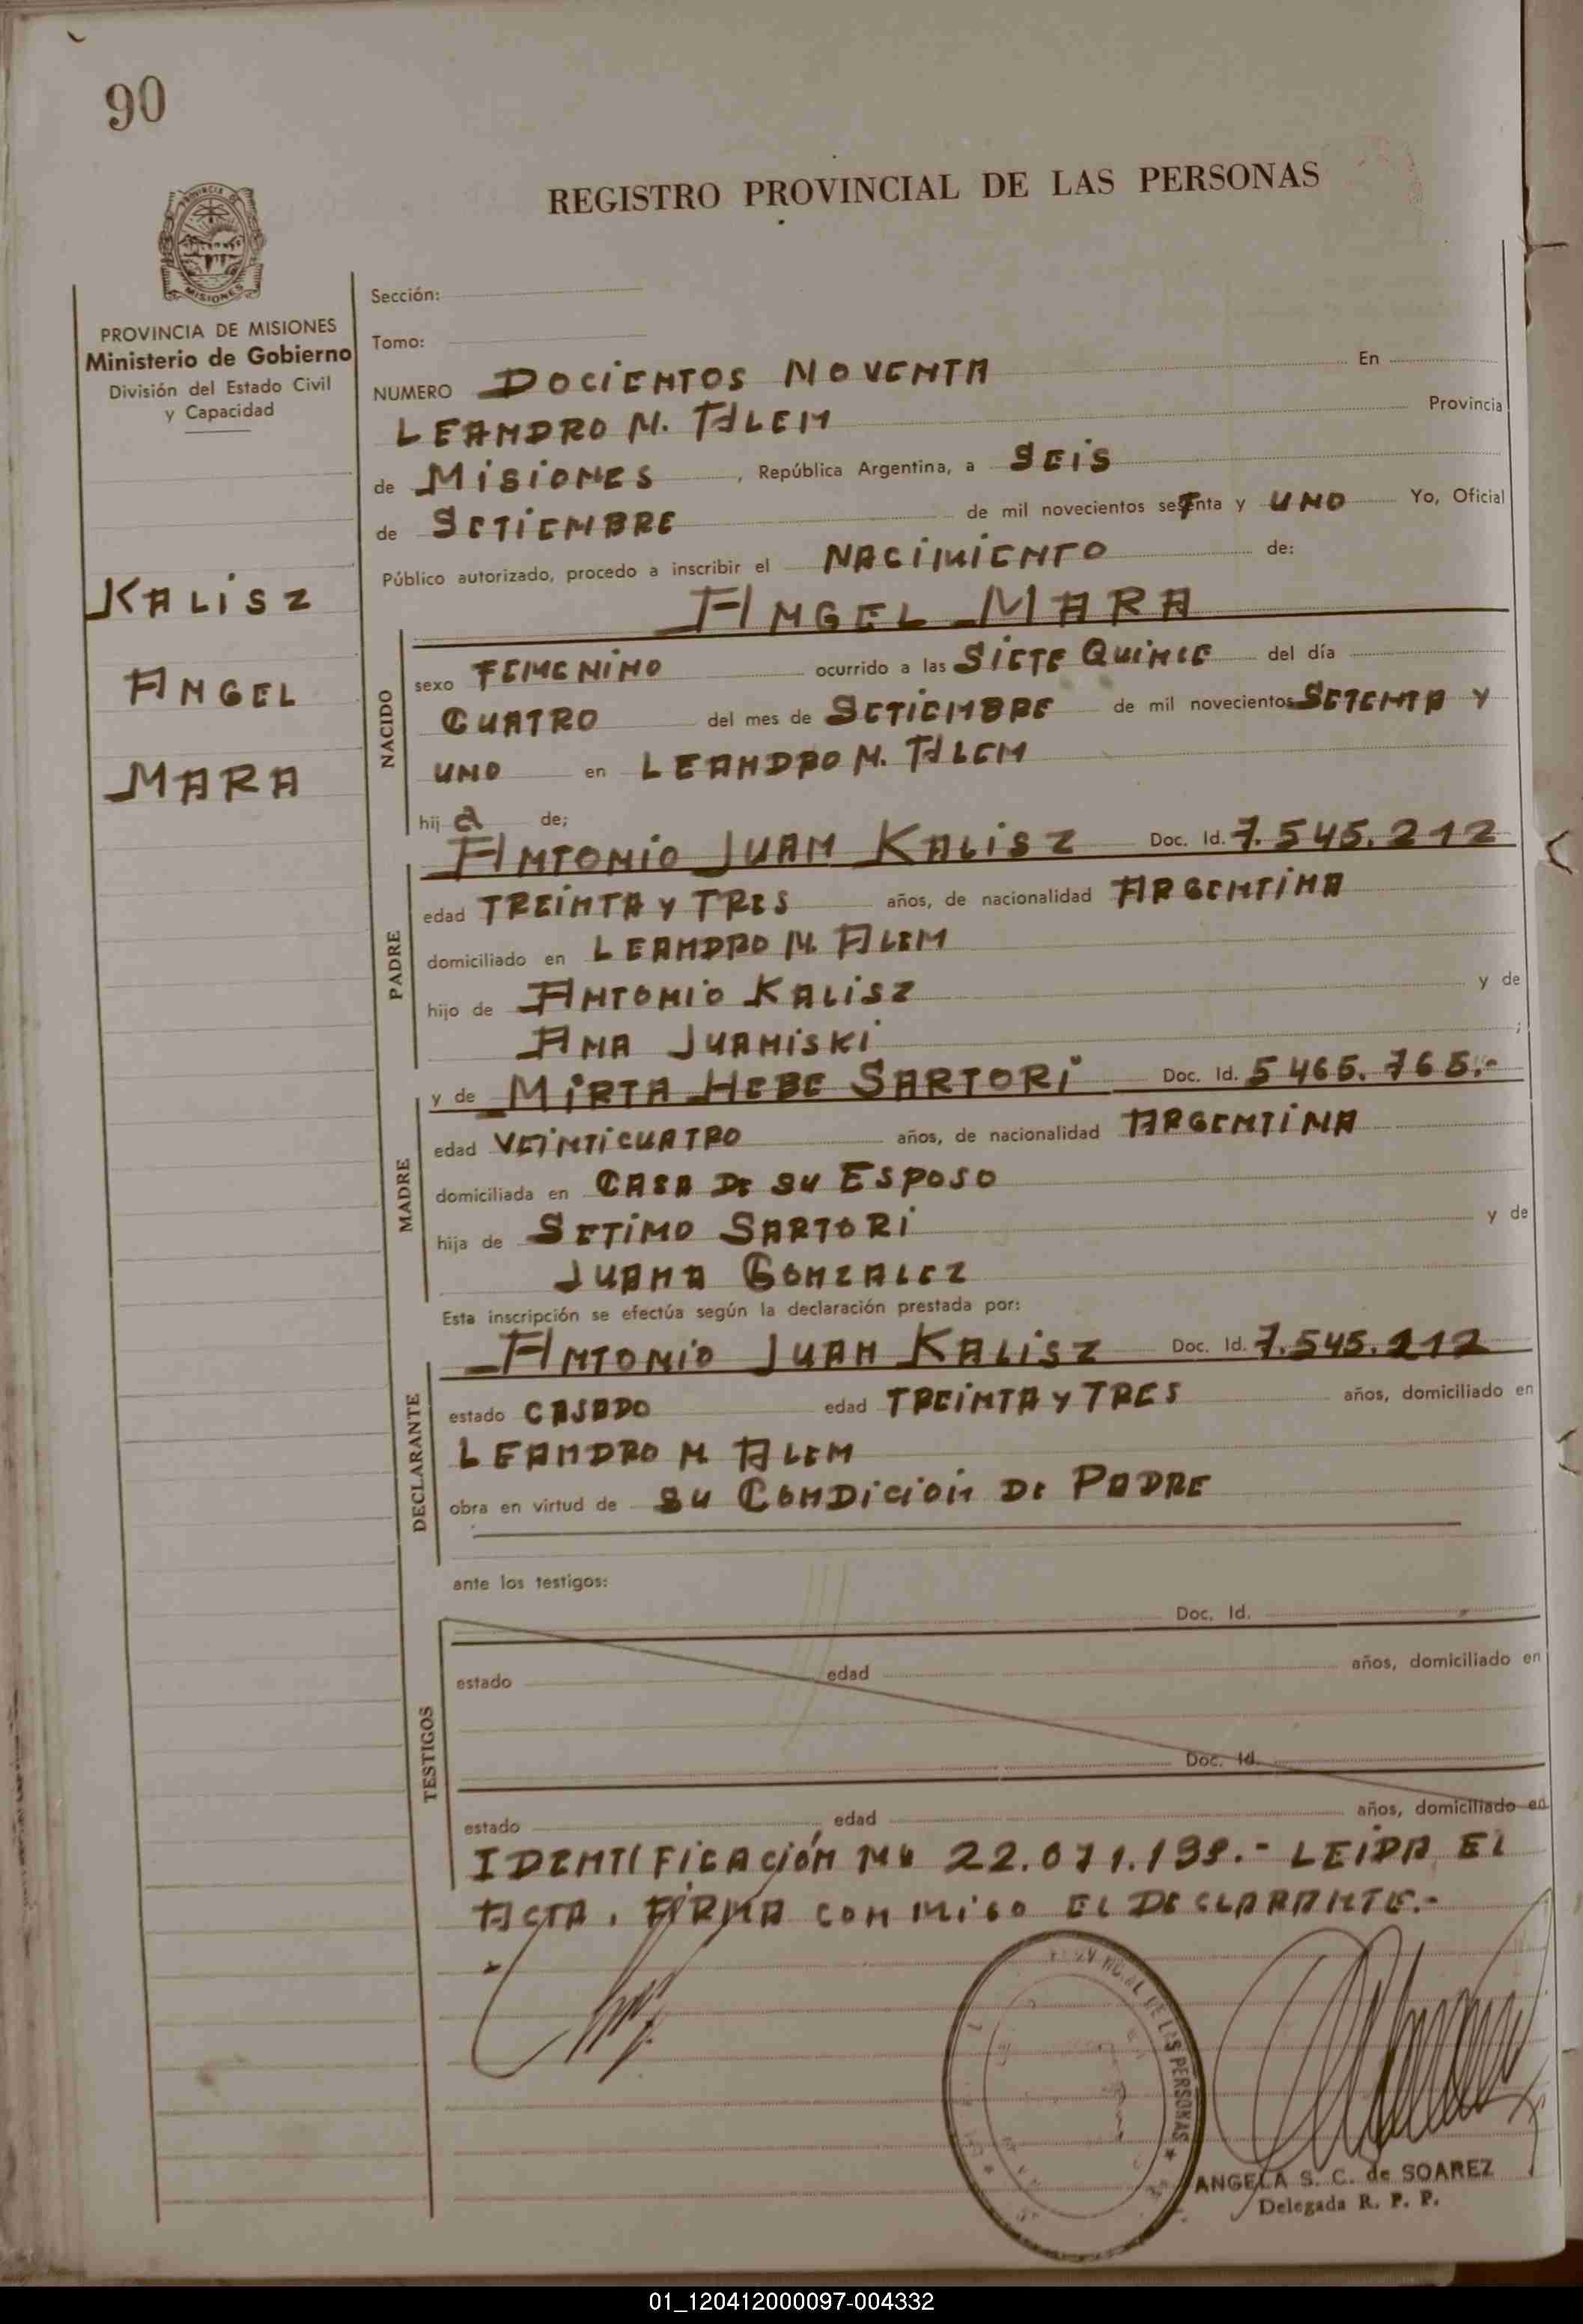 90
REGISTRO PROVINCIAL DE LAS PERSONAS
PROVINCIA DE MISIONES
MISIONES
PROVINCIA DE MISIONES
Ministerio de Gobierno
División del Estado Civil
y Capacidad
KALISZ
ANGEL
MARA
Sección:
Tomo:
NUMERO DOCIENTOS NOVENTA En
LEANDRO N. ALEM Provincia
de MISIONES , República Argentina, a SEIS
de SETIEMBRE de mil novecientos setenta y UNO Yo, Oficial
Público autorizado, procedo a inscribir el NACIMIENTO de:
ANGEL MARA
NACIDO
sexo FEMENINO ocurrido a las SIETE QUINCE del día
CUATRO del mes de SETIEMBRE de mil novecientos SETENTA Y
UNO en LEANDRO N. ALEM
hij a de;
ANTONIO JUAN KALISZ Doc. Id. 7.545.212
PADRE
edad TREINTA Y TRES años, de nacionalidad ARGENTINA
domiciliado en LEANDRO N. ALEM
hijo de ANTONIO KALISZ y de
ANA JUANISKI ;
y de MIRTA HEBE SARTORI Doc. Id. 5465.765.-
MADRE
edad VEINTICUATRO años, de nacionalidad ARGENTINA
domiciliada en CASA DE SU ESPOSO
hija de SETIMO SARTORI y de
JUANA GONZALEZ
Esta inscripción se efectúa según la declaración prestada por:
ANTONIO JUAN KALISZ Doc. Id. 7.545.212
DECLARANTE
estado CASADO edad TREINTA Y TRES años, domiciliado en
LEANDRO N ALEM
obra en virtud de SU CONDICIÓN DE PADRE
ante los testigos:
Doc. Id.
TESTIGOS
estado edad años, domiciliado en
Doc. Id.
estado edad años, domiciliado en
IDENTIFICACIÓN Nº 22.071.139.- LEIDA EL
ACTA, FIRMA CONMIGO EL DECLARANTE.-
PROVINCIAL DE LAS PERSONAS
ANGELA S. C. de SOAREZ
Delegada R. P. P.
01_120412000097-004332